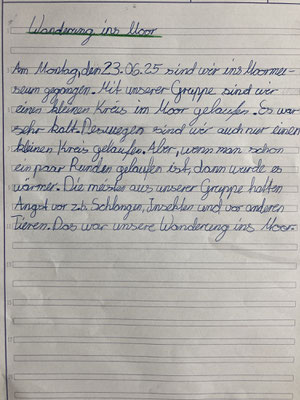 Wanderung ins Moor
Am Montag, den 23.06.25 sind wir ins Moormu-
seum gegangen. Mit unserer Gruppe sind wir
einen kleinen Kreis im Moor gelaufen. Es war
sehr kalt. Deswegen sind wir auch nur einen
kleinen Kreis gelaufen. Aber, wenn man schon
ein paar Runden gelaufen ist, dann wurde es
warmer. Die meisten aus unserer Gruppe hatten
Angst vor z.b. Schlangen, Insekten und vor anderen
Tieren. Das war unsere Wanderung ins Moor.